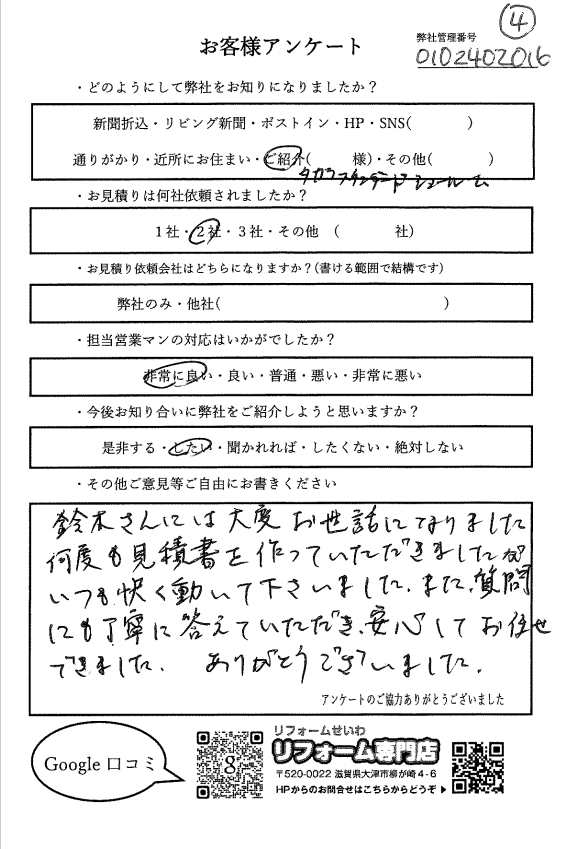 ④
お客様アンケート
弊社管理番号
0102402016
・どのようにして弊社をお知りになりましたか？
新聞折込・リビング新聞・ポストイン・HP・SNS(　　　　)
通りがかり・近所にお住まい・ご紹介(　　　様)・その他(　　　　)
タカラスタンダードショールーム
・お見積りは何社依頼されましたか？
1社・2社・3社・その他　(　　　　社)
・お見積り依頼会社はどちらになりますか？(書ける範囲で結構です)
弊社のみ・他社(　　　　　　　　　　　　　　　　)
・担当営業マンの対応はいかがでしたか？
非常に良い・良い・普通・悪い・非常に悪い
・今後お知り合いに弊社をご紹介しようと思いますか？
是非する・したい・聞かれれば・したくない・絶対しない
・その他ご意見等ご自由にお書きください
鈴木さんには大変お世話になりました
何度も見積書を作っていただきましたが
いつも快く動いて下さいました。また、質問
にも丁寧に答えていただき、安心してお任せ
できました。　ありがとうございました。
アンケートのご協力ありがとうございました
Google 口コミ
g
リフォームせいわ
リフォーム専門店
〒520-0022 滋賀県大津市柳が崎4-6
HPからのお問合せはこちらからどうぞ ▶